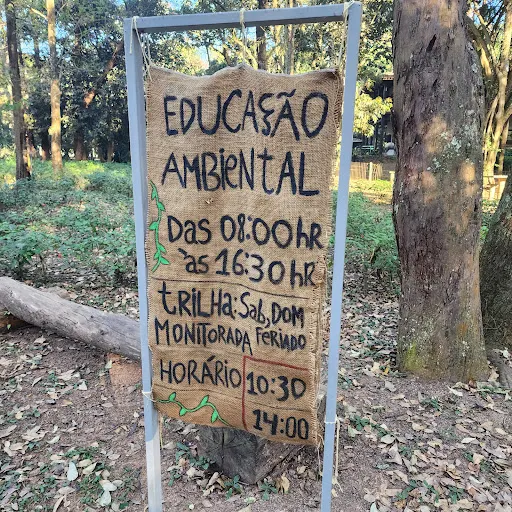 EDUCAÇÃO
AMBIENTAL
Das 08:00hr
às 16:30hr
trilha: Sab, DOM
MONITORADA FERIADO
HORÁRIO 10:30
14:00